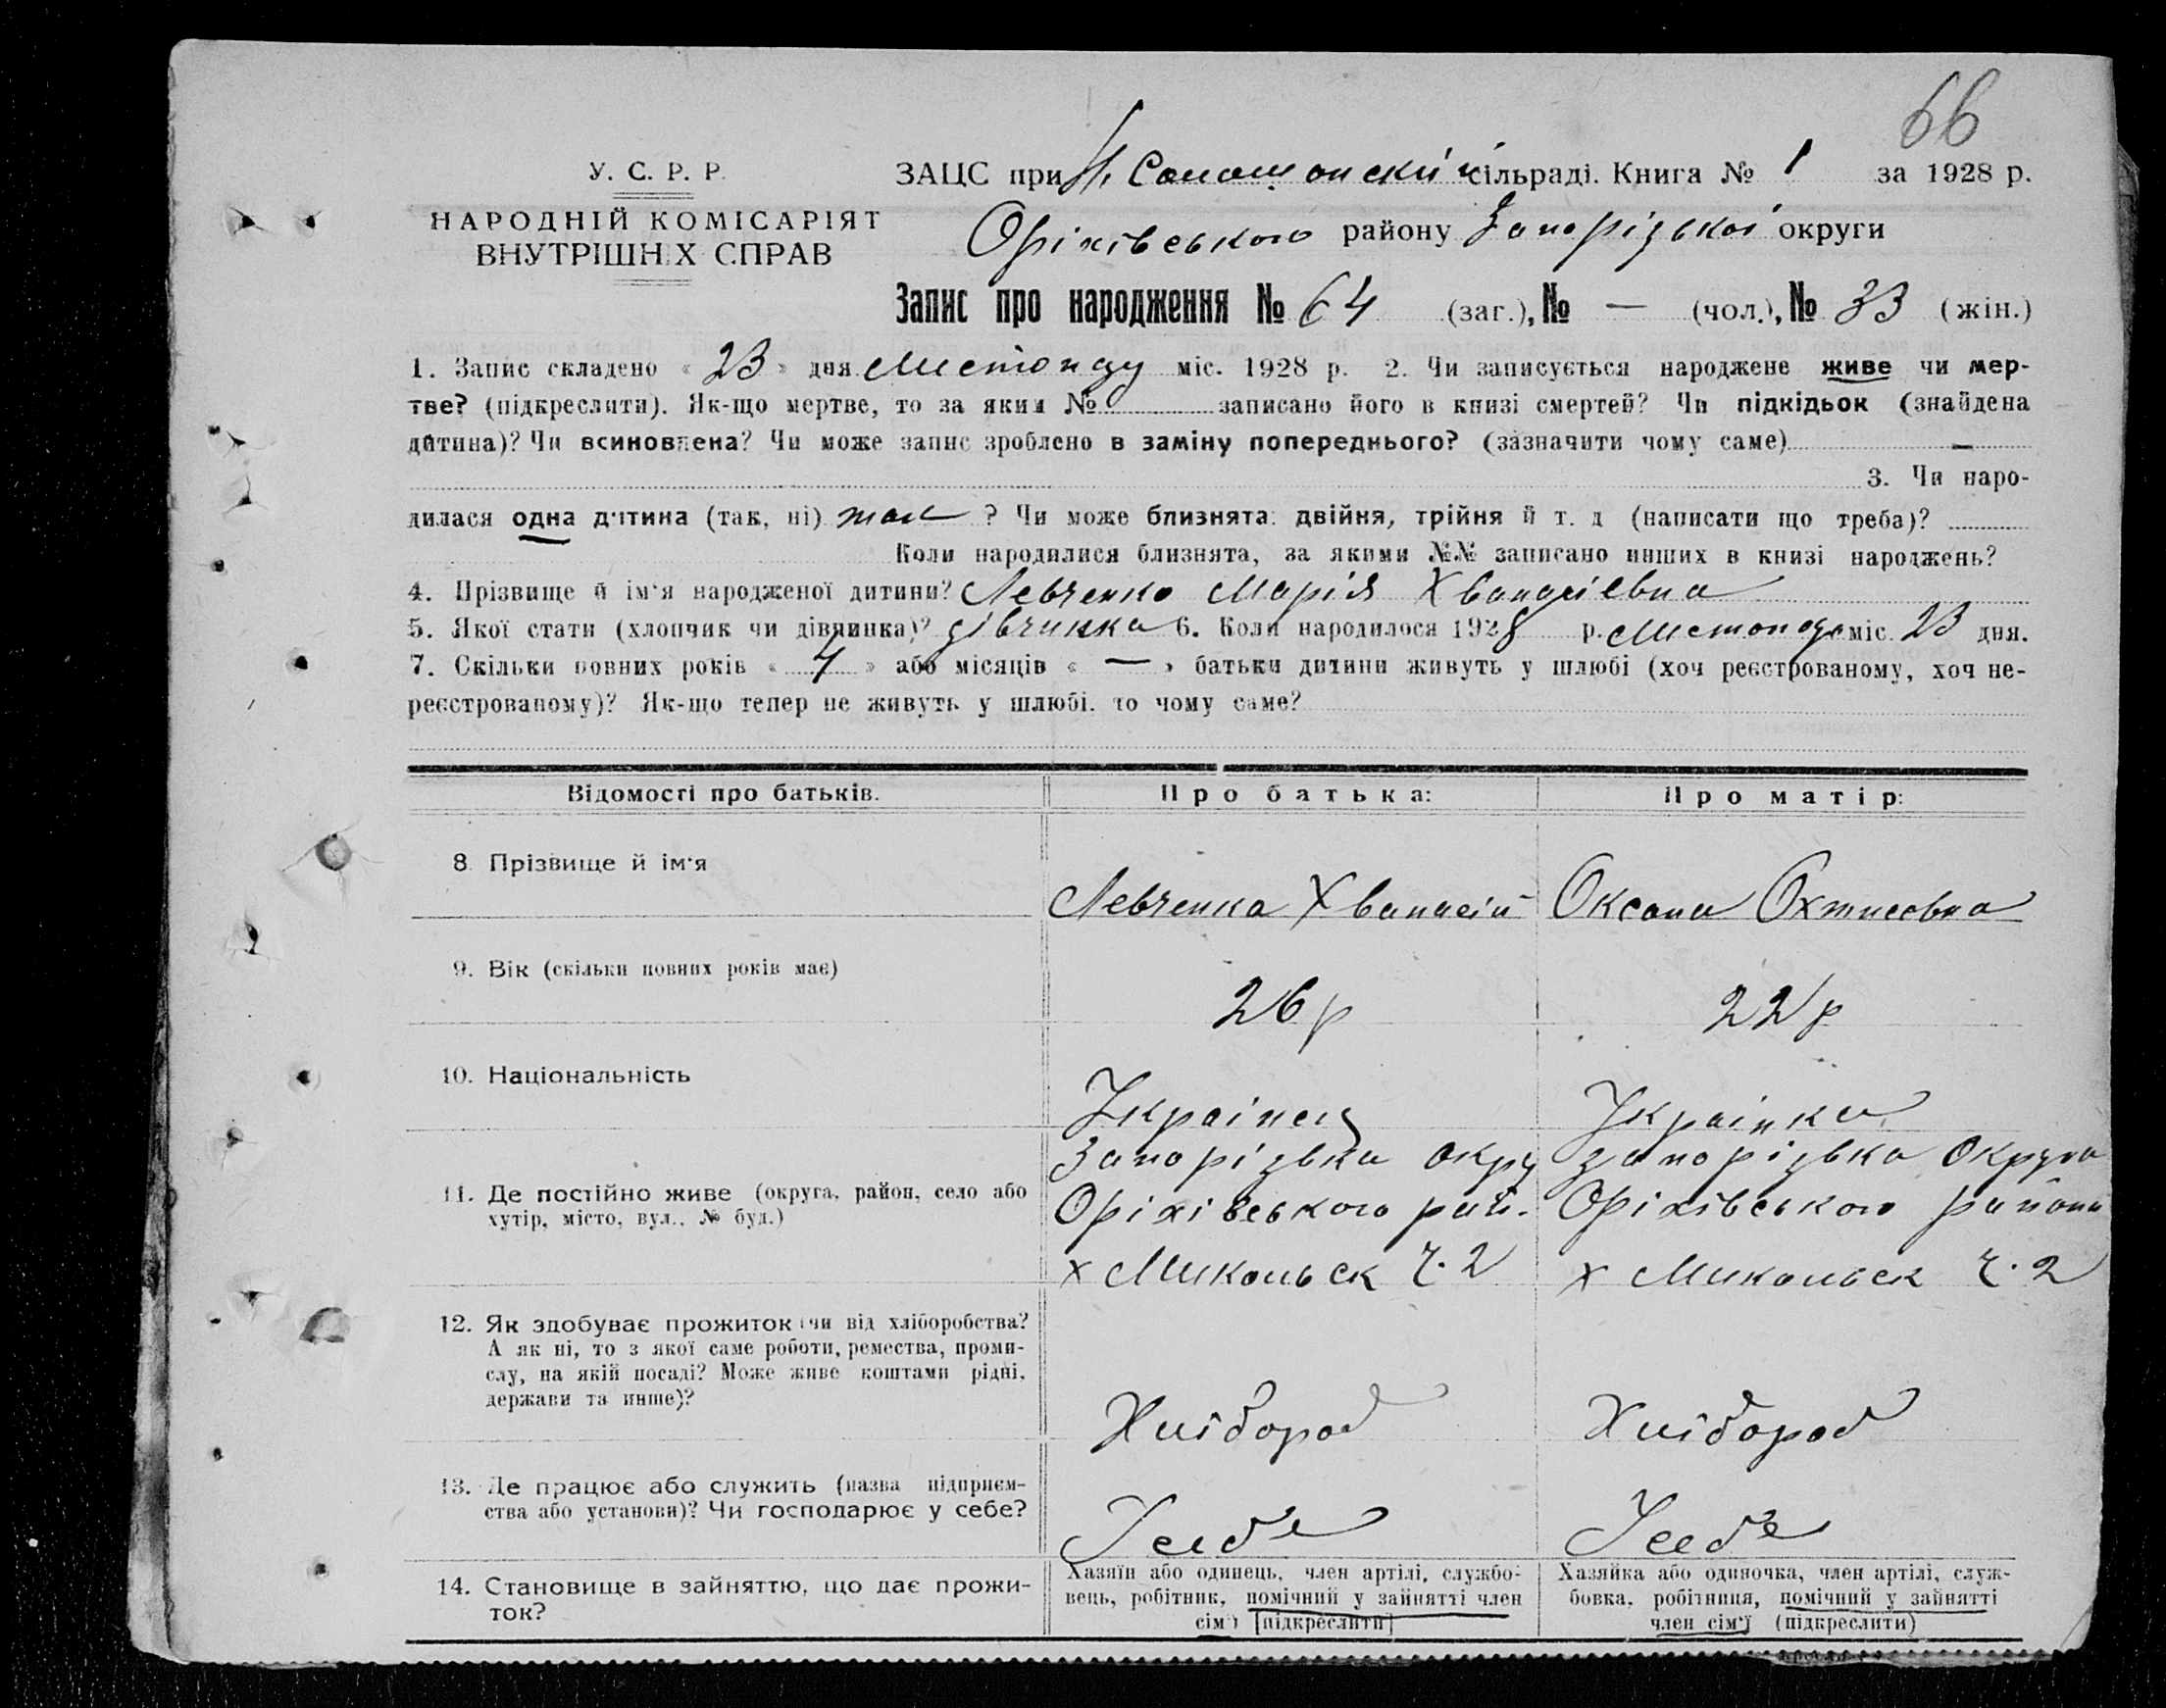 66
У. С. Р. Р.
ЗАЦС при сільраді. Книга № 1 за 1928 р.
НАРОДНІЙ КОМІСАРІЯТ
ВНУТРІШН Х СПРАВ
Оріхівського району Запорізької округи
Запис про народження № 64 (заг.), № — (чол.), № 33 (жін.)
1. Запис складено « 23 » дня Листопаду міс. 1928 р. 2. Чи записується народжене живе чи мер-
тве? (підкреслити). Як-що мертве, то за яким № записано його в книзі смертей? Чи підкідьок (знайдена
дитина)? Чи всиновлена? Чи може запис зроблено в заміну попереднього? (зазначити чому саме) —
3. Чи наро-
дилася одна дитина (так, ні) так ? Чи може близнята: двійня, трійня й т. д (написати що треба)?
Коли народилися близнята, за якими №№ записано инших в книзі народжень?
4. Прізвище й ім'я народженої дитини? Левченко Марія Хванасіевна
5. Якої стати (хлопчик чи дівчинка)? дівчинка 6. Коли народилося 1928 р. Листопада міс. 23 дня.
7. Скільки повних років « 4 » або місяців « — » батьки дитини живуть у шлюбі (хоч реєстрованому, хоч не-
реєстрованому)? Як-що тепер не живуть у шлюбі. то чому саме?
Відомості про батьків. Про батька: Про матір:
8 Прізвище й ім'я
Левченка Хванасій Оксана Охтисовна
9. Вік (скільки повних років має)
26 р 22 р
10. Національність
Українец Українка
Запорізька окру Запорізька Округа
11. Де постійно живе (округа, район, село або
хутір, місто, вул., № буд.)
Оріхівського рай. Оріхівського района
х Микольск ч. 2 х Микольск ч. 2
12. Як здобуває прожиток (чи від хліборобства?
А як ні, то з якої саме роботи, ремества, проми-
слу, на якій посаді? Може живе коштами рідні,
держави та инше)?
Хлібороб Хлібороб
13. Де працює або служить (назва підприєм-
ства або установи)? Чи господарює у себе?
У себе У себе
14. Становище в зайняттю, що дає прожи-
ток?
Хазяїн або одинець, член артілі, службо-
вець, робітник, помічний у зайнятті член
сім'ї [підкреслити]
Хазяйка або одиночка, член артілі, служ-
бовка, робітниця, помічний у зайнятті
член сім'ї (підкреслити)